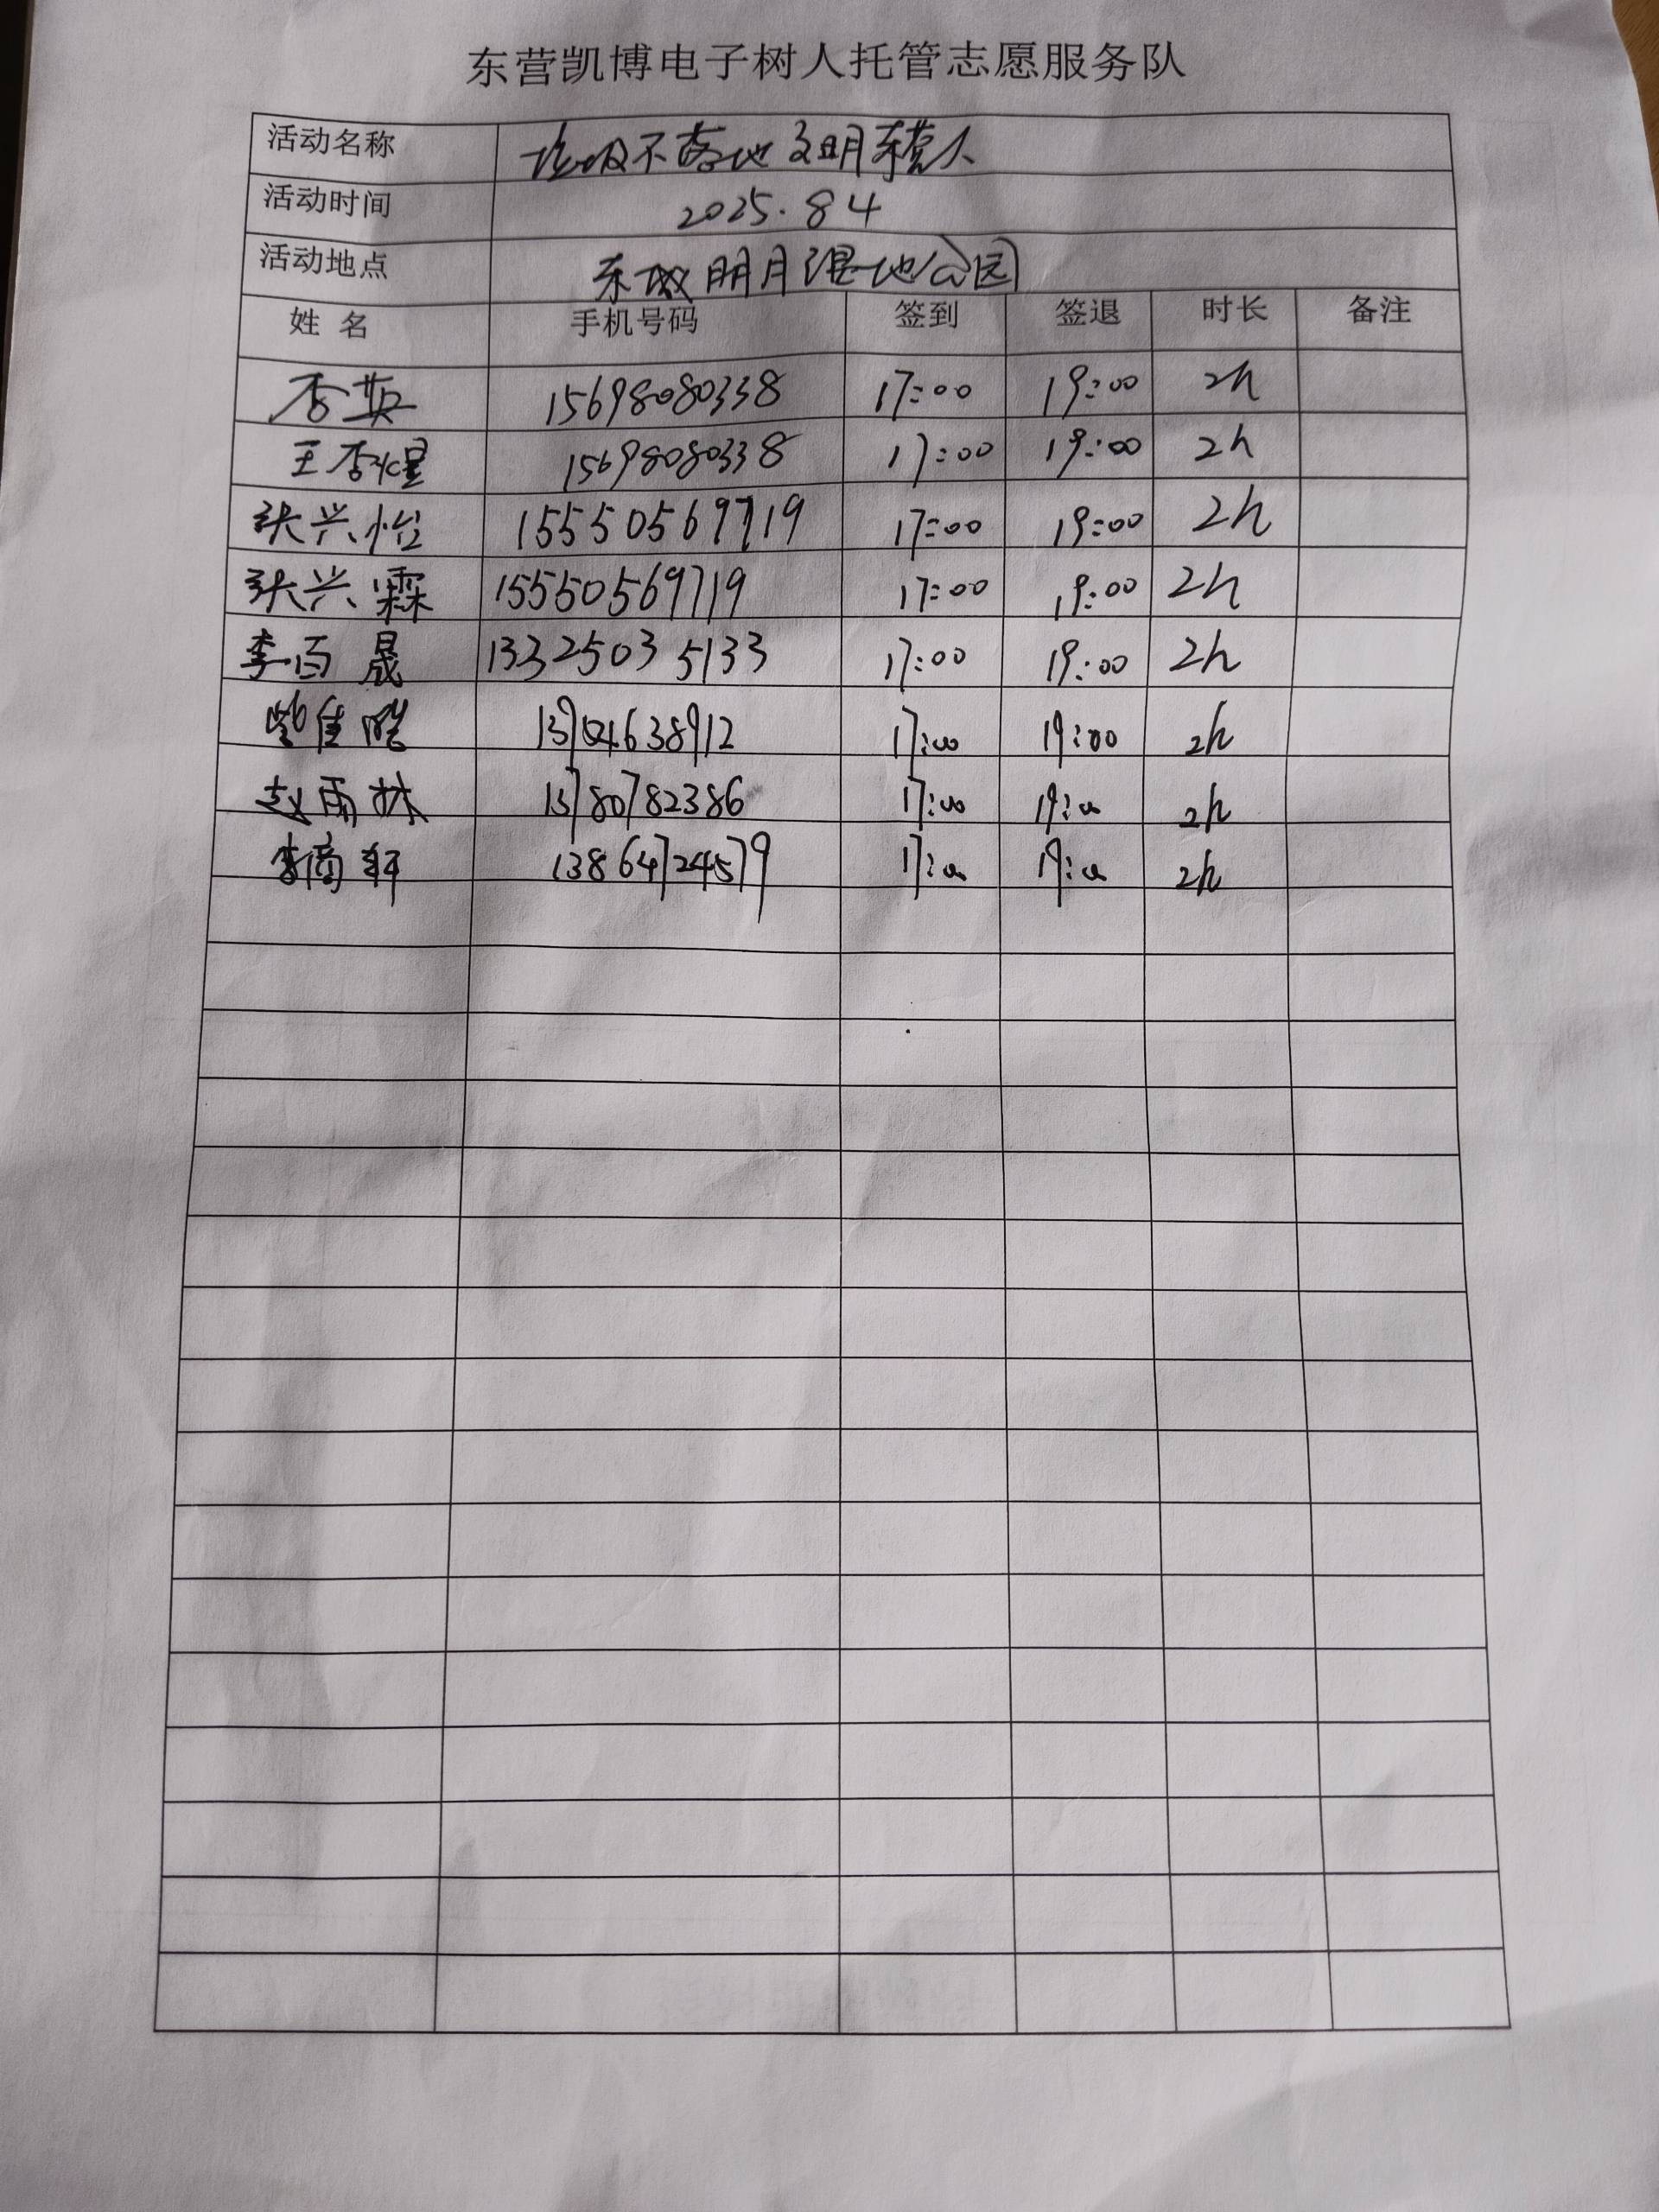 东营凯博电子树人托管志愿服务队
活动名称 垃圾不落地 文明东营人
活动时间 2025.8 4
活动地点 东城明月湿地公园
姓 名 手机号码 签到 签退 时长 备注
李英 15698080338 17:00 19:00 2h
王李煜 15698080338 17:00 19:00 2h
张兴怡 15550569719 17:00 19:00 2h
张兴霖 15550569719 17:00 19:00 2h
李百晟 13325035133 17:00 19:00 2h
佳皓 17:00 19:00 2h
赵雨林 13780782386 17:00 19:00 2h
李 轩 13864724579 17:00 19:00 2h